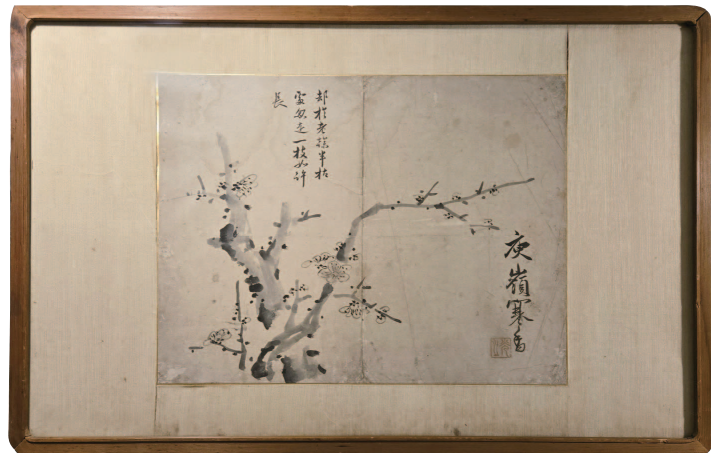 庾嶺寒香
却於老幹半枯
處忽走一枝如許
長